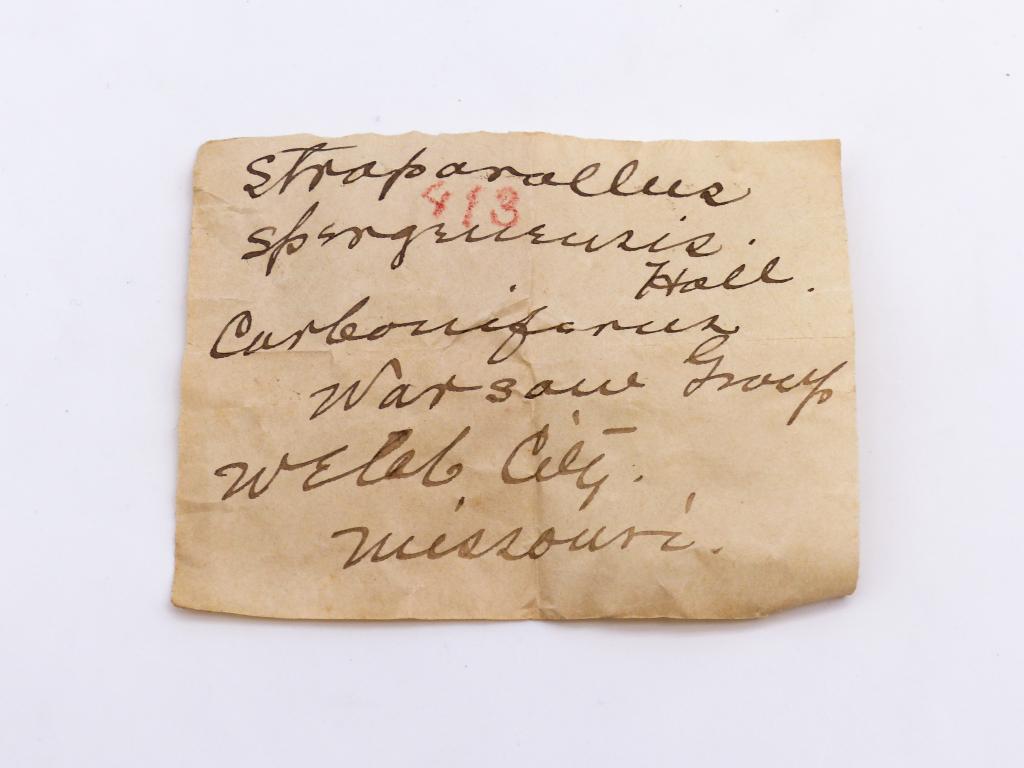 Straparollus
413
spergenensis.
Hall.
Carboniferus
Warsaw Group
Webb City.
Missouri.